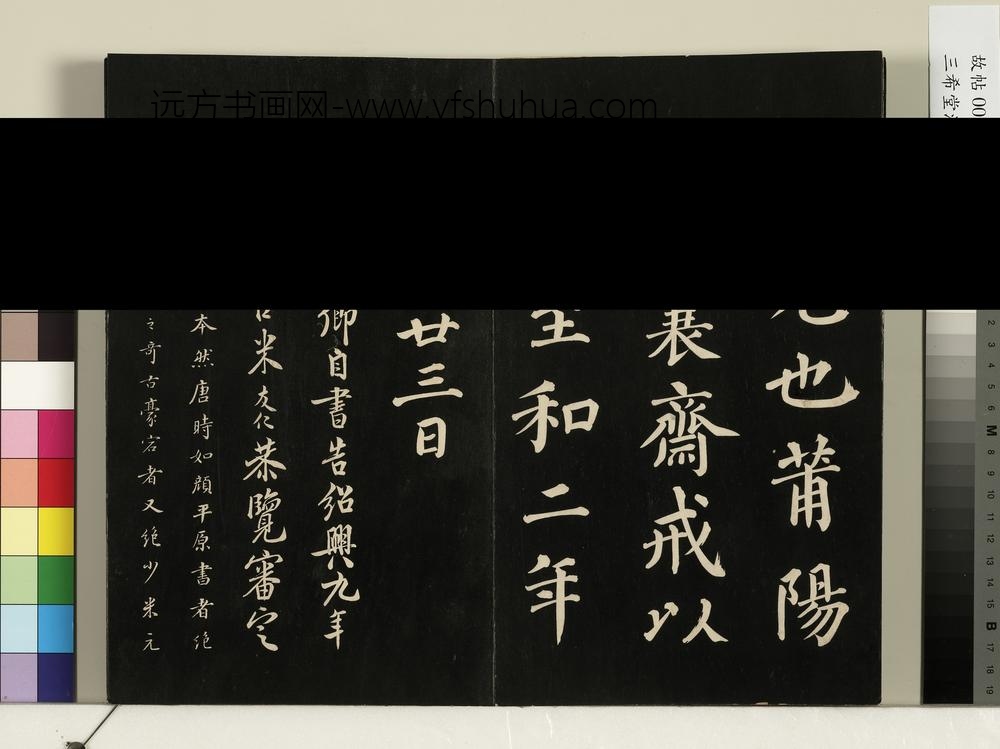 远方书画网-www.yfshuhua.com
故帖00
三希堂
也莆陽
襄齋戒以
至和二年
廿三日
卿自書告紹興九年
米友仁恭覽審定
本然唐時如顔平原書者絶
之奇古豪宕者又絶少米元
2
3
4
5
6
M
8
9
10
11
12
13
14
15
B
17
18
19